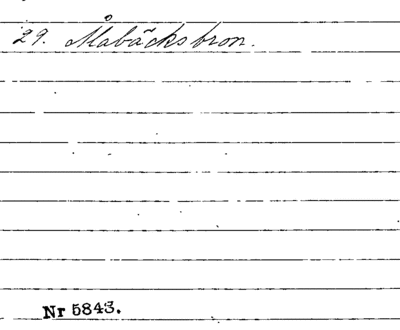 29. Måbäcksbron.
Nr 5843.